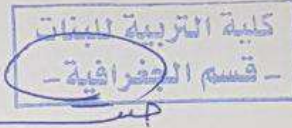 كلية التربية للبنات
- قسم الجغرافية -